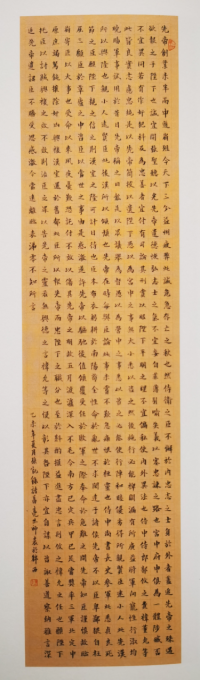 先帝創業未半而中道崩殂今天下三分益州疲弊此誠危急存亡之秋也然侍衛之臣不懈於內忠志之士忘身於外者蓋追先帝之殊遇
欲報之於陛下也誠宜開張聖聽以光先帝遺德恢弘志士之氣不宜妄自菲薄引喻失義以塞忠諫之路也宮中府中俱為一體陟罰臧否
不宜異同若有作奸犯科及為忠善者宜付有司論其刑賞以昭陛下平明之理不宜偏私使內外異法也侍中侍郎郭攸之費禕董允等
此皆良實志慮忠純是以先帝簡拔以遺陛下愚以為宮中之事事無大小悉以咨之然後施行必能裨補闕漏有所廣益將軍向寵性行淑均
曉暢軍事試用於昔日先帝稱之曰能是以眾議舉寵為督愚以為營中之事悉以咨之必能使行陣和睦優劣得所親賢臣遠小人此先漢
所以興隆也親小人遠賢臣此後漢所以傾頹也先帝在時每與臣論此事未嘗不歎息痛恨於桓靈也侍中尚書長史參軍此悉貞良死
節之臣願陛下親之信之則漢室之隆可計日而待也臣本布衣躬耕於南陽苟全性命於亂世不求聞達於諸侯先帝不以臣卑鄙猥自枉屈
三顧臣於草廬之中諮臣以當世之事由是感激遂許先帝以驅馳後值傾覆受任於敗軍之際奉命於危難之間爾來二十有一年矣先帝知臣謹慎故臨崩
寄臣以大事也受命以來夙夜憂歎恐託付不效以傷先帝之明故五月渡瀘深入不毛今南方已定兵甲已足當獎率三軍北定中原
庶竭駑鈍攘除奸凶興復漢室還於舊都此臣所以報先帝而忠陛下之職分也至於斟酌損益進盡忠言則攸之禕允之任也願陛下
託臣以討賊興復之效不效則治臣之罪以告先帝之靈若無興德之言則責攸之禕允等之慢以彰其咎陛下亦宜自謀以諮諏善道察納雅言深
追先帝遺詔臣不勝受恩感激今當遠離臨表涕零不知所言
乙未年夏月 諸葛亮出師表